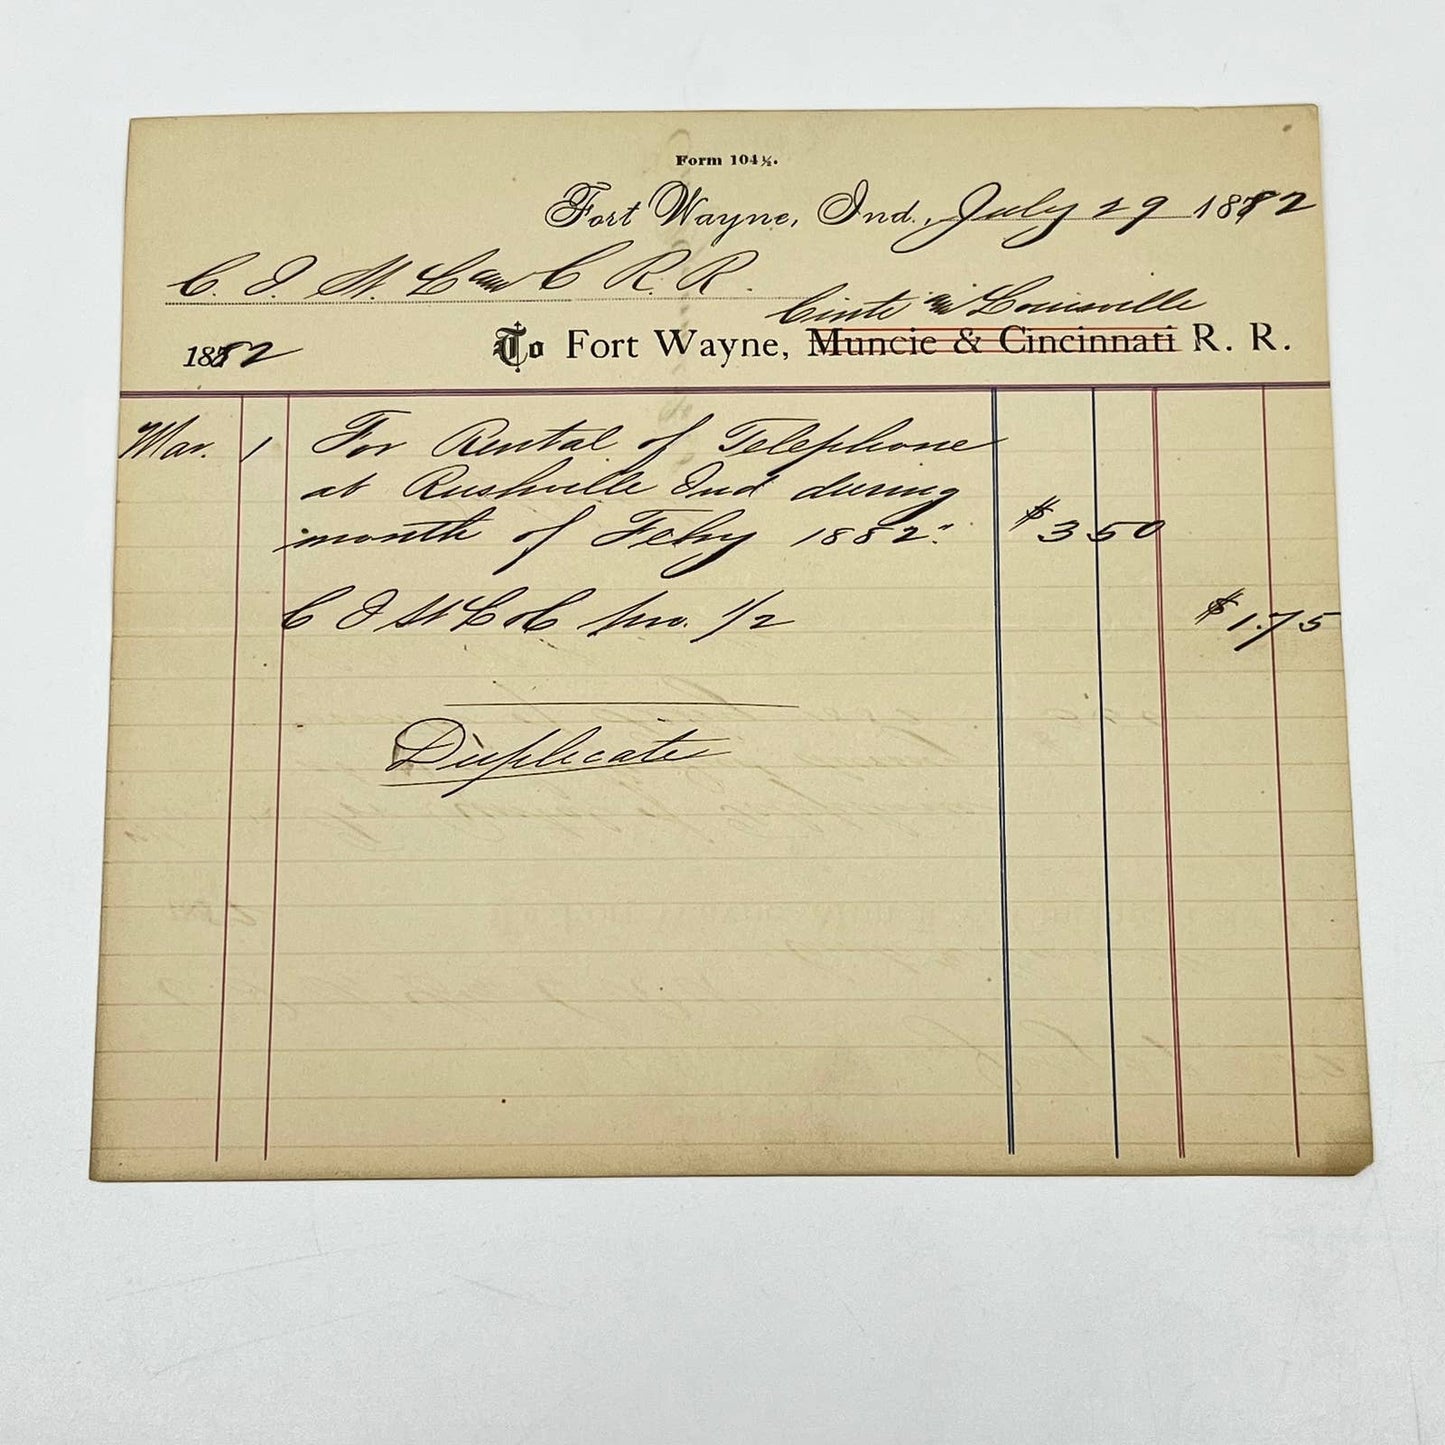 Form 104½.
Fort Wayne, Ind., July 29 1882
C. I. St. L and C R. R.
Cinti and Louisville
1882 To Fort Wayne, Muncie & Cincinnati R. R.
Mar. 1 For Rental of Telephone
at Rushville Ind during
month of Feby 1882. $3 50
C I St L & C pro. 1/2 $1.75
Duplicate